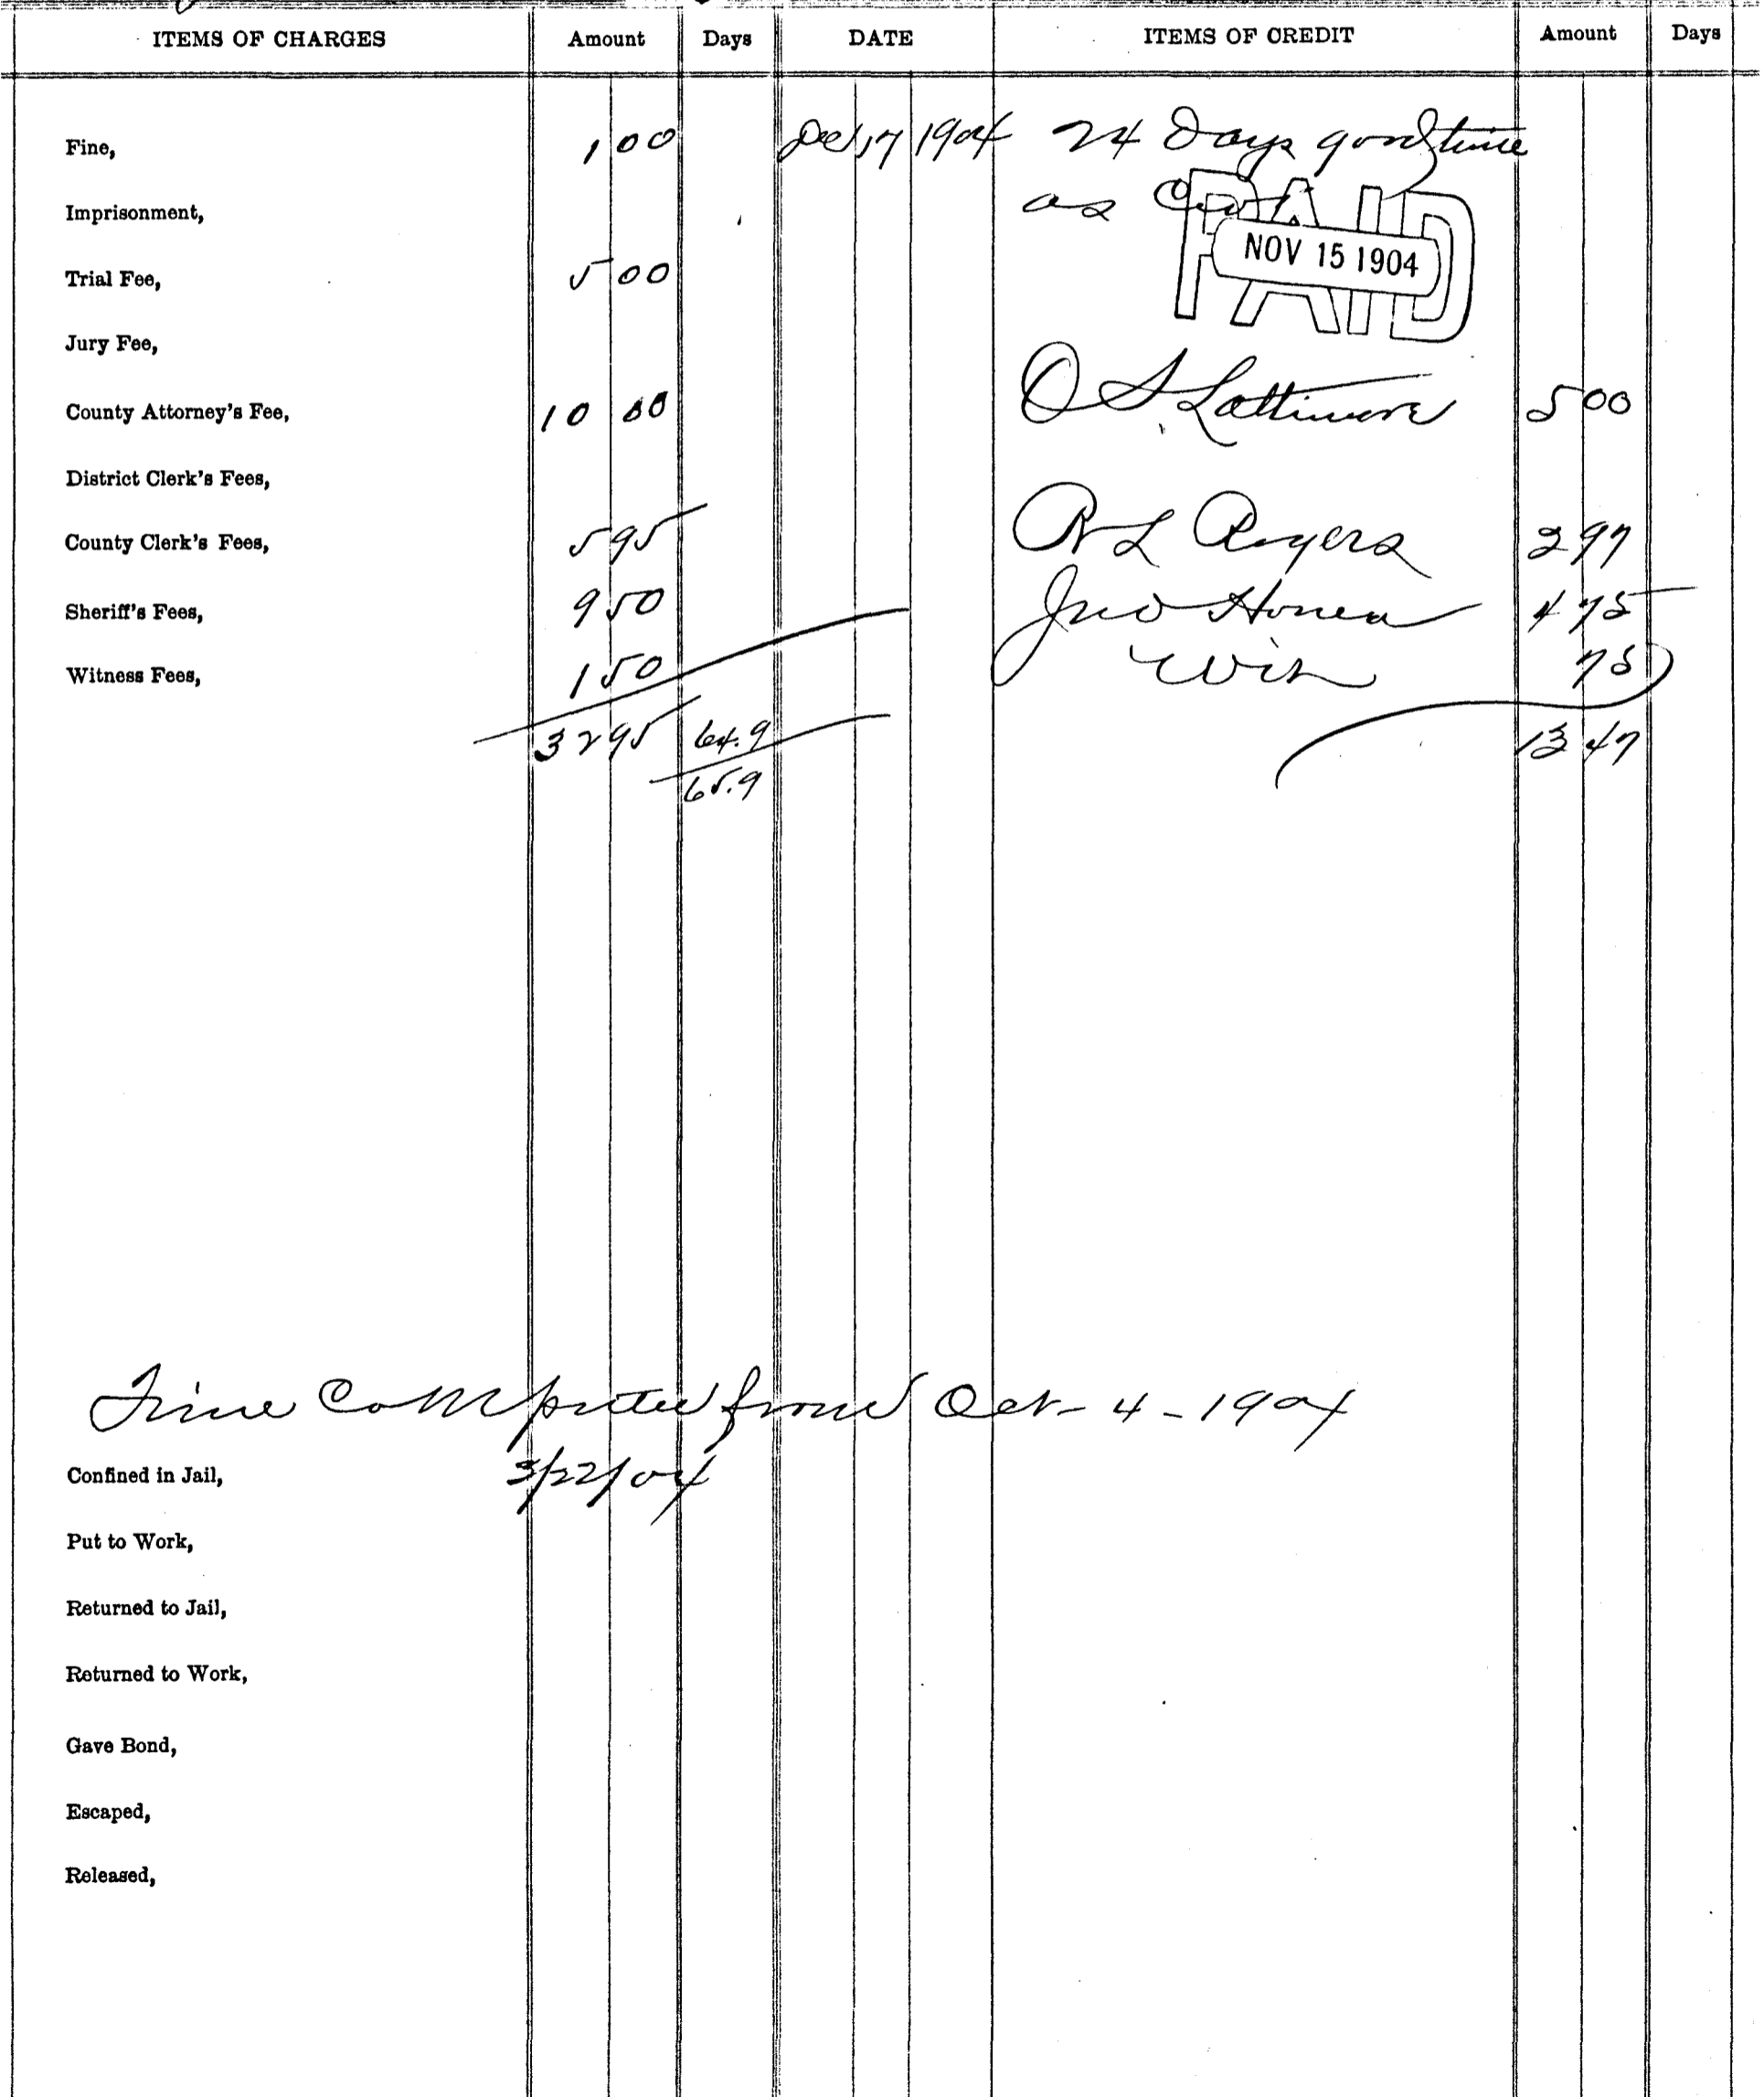 ITEMS OF CHARGES Amount Days DATE ITEMS OF CREDIT Amount Days
Fine, 1 00 Dec 17 1904 24 Days good time
Imprisonment, as
PAID
NOV 15 1904
Trial Fee, 5 00
Jury Fee,
County Attorney's Fee, 10 00 O S Lattimore 5 00
District Clerk's Fees,
County Clerk's Fees, 5 95 R L Rogers 2 97
Sheriff's Fees, 9 50 Jno Honea 4 75
Witness Fees, 1 50 Wit 75
32 95 64.9 13 47
65.9
Time Computed from Oct - 4 - 1904
Confined in Jail, 3/22/04
Put to Work,
Returned to Jail,
Returned to Work,
Gave Bond,
Escaped,
Released,